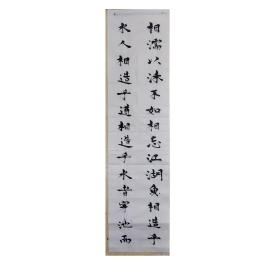 相濡以沫不如相忘江湖魚相造乎
水人相造乎道相造乎水者穿池而